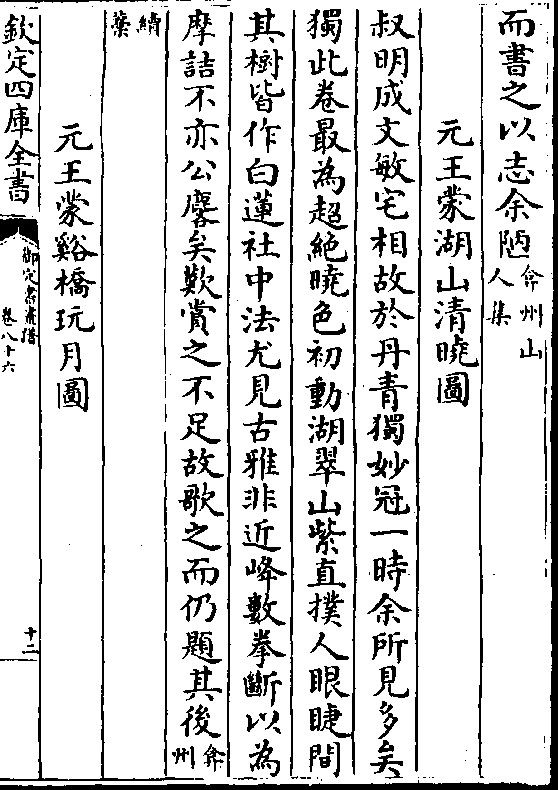 而書之以志余陋弇州山人集
元王蒙湖山清曉圖
叔明成文敏宅相故於丹青獨妙冠一時余所見多矣
獨此卷最為超絶曉色初動湖翠山紫直撲人眼睫間
其樹皆作白蓮社中法尤見古雅非近峰數拳斷以為
摩詰不亦公麐矣歎賞之不足故歌之而仍題其後弇州
續藁
元王蒙谿橋玩月圖
欽定四庫全書
御定書畫譜
卷八十六
十二